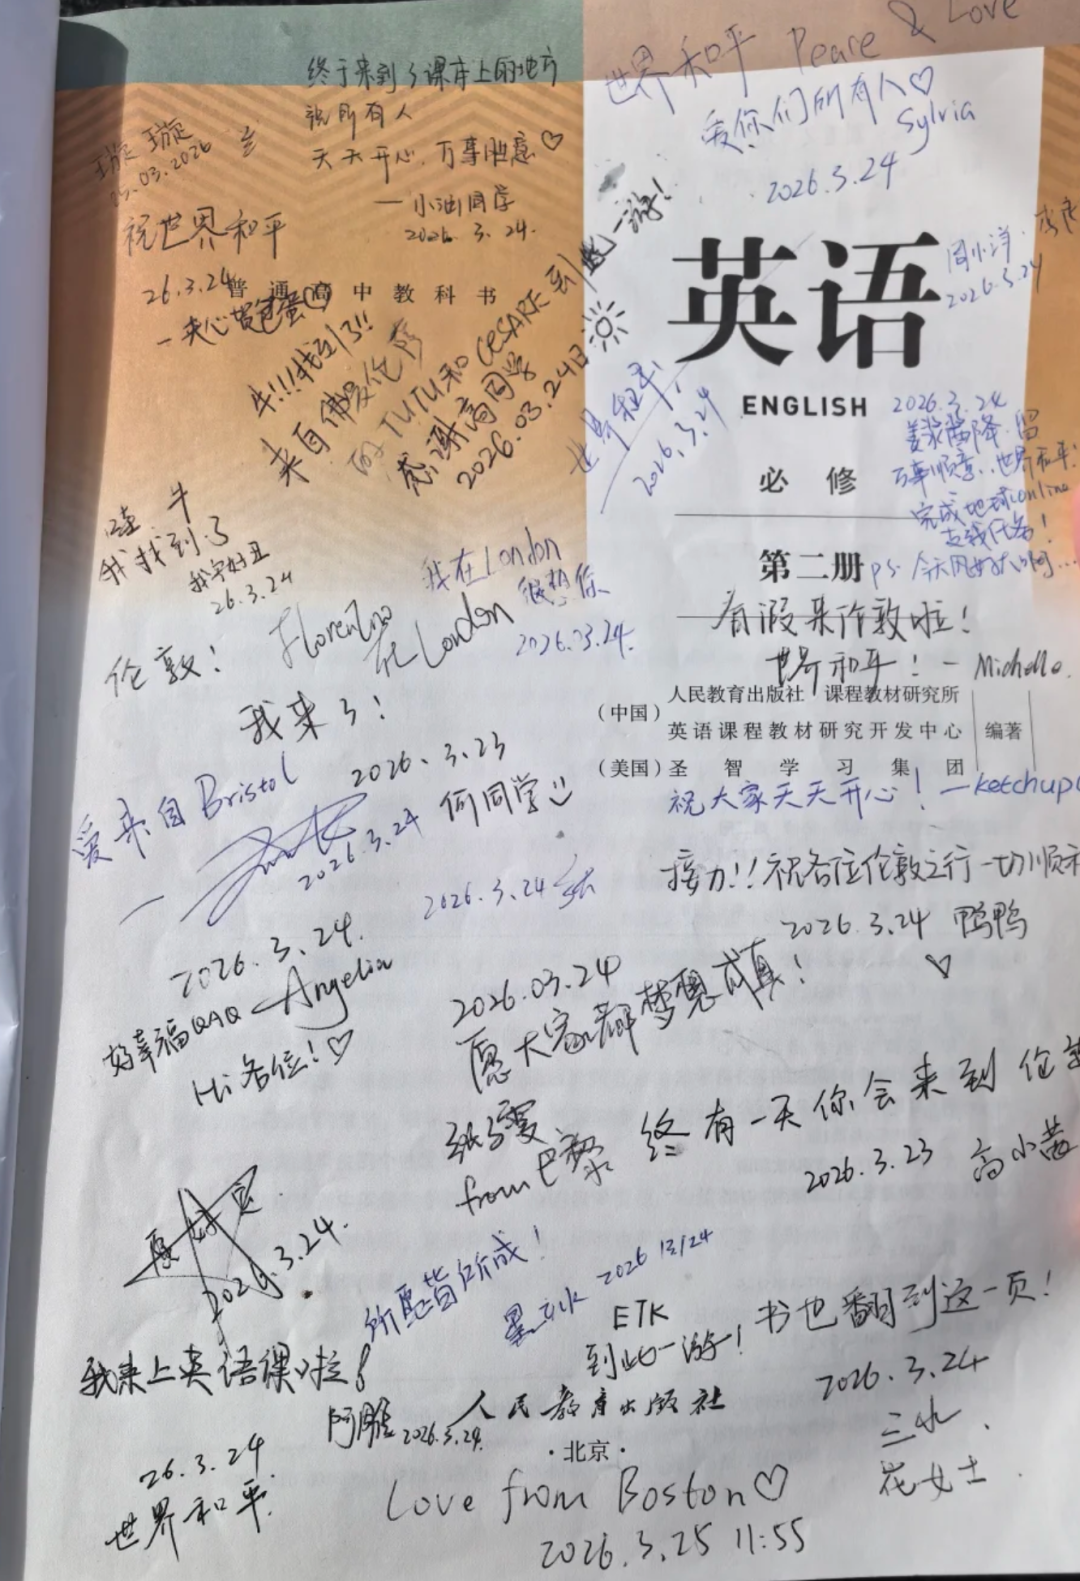 世界和平 Peace & Love
爱你们所有人♡
Sylvia
2026.3.24
终于来到了课本上的地方
祝所有人
天天开心,万事胜意♡
—小油同学
2026. 3. 24.
璇璇
25.03.2026
祝世界和平
26.3.24
一夹心荷包蛋
普通高中教科书
牛!!!我到了!!
来自佛罗伦萨
的TUTU和CESARE到此一游!
感谢高同学
2026.03.24日
英语
ENGLISH
必修
第二册
周小洋
2026.3.24
世界和平!
2026.3.24
2026.3.24
万事顺意,世界和平!
完成地球online
支线任务!
ps.今天风好大啊...
哇 牛
我找到了
我字好丑
26.3.24
我在London
很想你
2026.03.24.
Florentino
在London
伦敦!
我来了!
2026.3.23
何同学
有假来伦敦啦!
世界和平!— Michelle.
(中国)人民教育出版社 课程教材研究所
英语课程教材研究开发中心
(美国)圣智学习集团
编著
祝大家天天开心!—ketchup
爱来自Bristol
2026.3.24
2026.3.24
接力!!祝各位伦敦之行一切顺利
2026.3.24 鸭鸭
♡
2026.3.24.
好幸福QAQ —Angelia
Hi各位!♡
2026.03.24
愿大家都梦想成真!
from巴黎
终有一天你会来到伦敦
2026.3.23 高小茜
2026.3.24.
所愿皆所成!
2026 3/24
ETK
到此一游!
书也翻到这一页!
2026.3.24
三水
花女士
我来上英语课啦!
26.3.24
世界和平.
2026.3.24.
人民教育出版社
·北京·
Love from Boston♡
2026.3.25 11:55